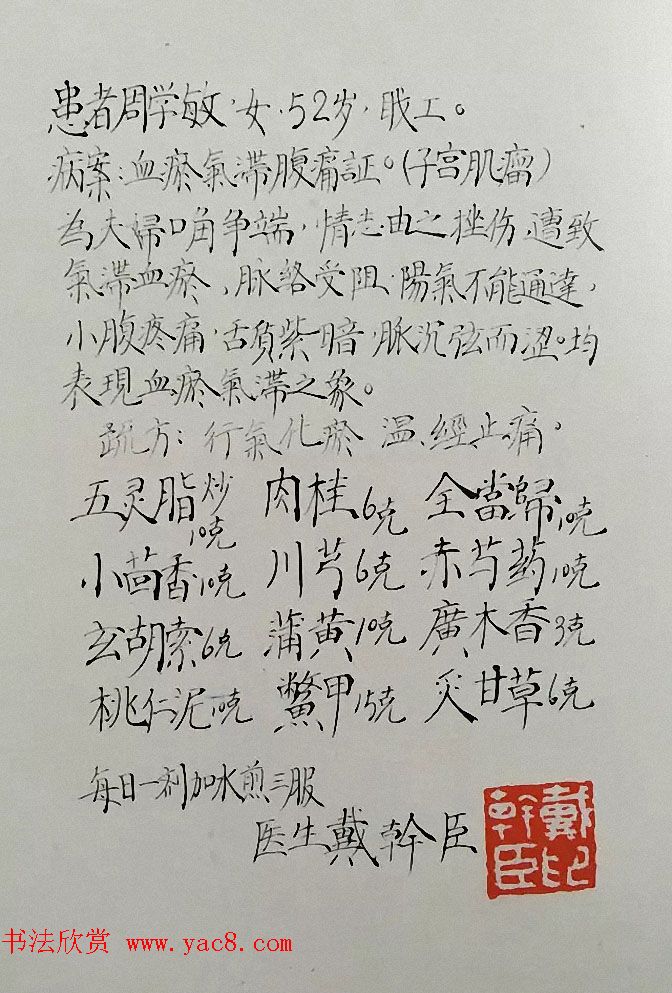 患者周学敏，女，52岁，职工。
病案：血瘀氣滞腹痛証。（子宫肌瘤）
為夫婦口角争端，情志由之挫伤，遭致
氣滞血瘀，脉络受阻，陽氣不能通達，
小腹疼痛，舌質紫暗，脉沉弦而涩。均
表現血瘀氣滞之象。
疏方：行氣化瘀 温經止痛。
五灵脂炒10克 肉桂6克 全當歸10克
小茴香10克 川芎6克 赤芍药10克
玄胡索6克 蒲黄10克 廣木香3克
桃仁泥10克 鱉甲15克 炙甘草6克
每日一剂加水煎三服
医生戴幹臣
戴幹臣印
书法欣赏 www.yac8.com